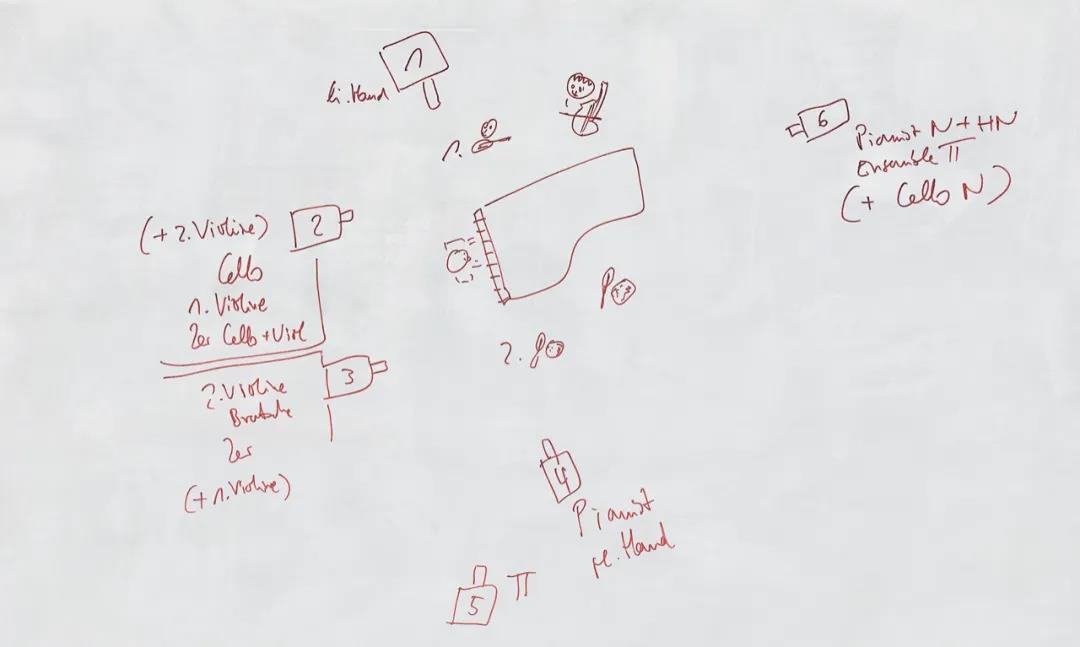 1
li. Hand
1.
6
Pianist N + HN
Ensemble TT
(+ Cello N)
(+ 2. Violine)
2
Cello
1. Violine
2er Cello + Viol
3
2. Violine
Bratsche
2er
(+ 1. Violine)
2.
4
Pianist
re. Hand
5
TT